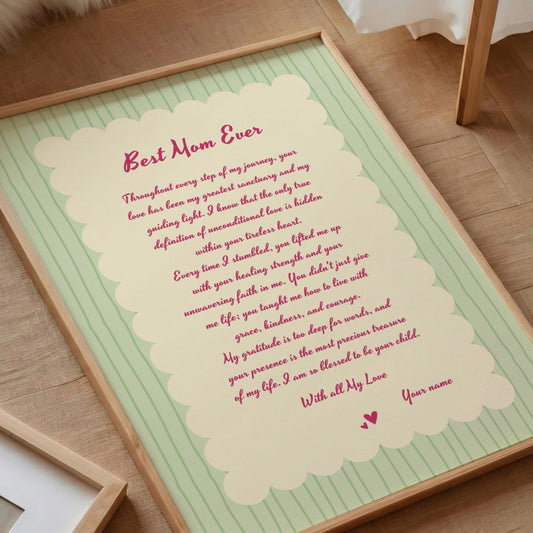 Best Mom Ever
Throughout every step of my journey, your
love has been my greatest sanctuary and my
guiding light. I know that the only true
definition of unconditional love is hidden
within your tireless heart.
Every time I stumbled, you lifted me up
with your healing strength and your
unwavering faith in me. You didn't just give
me life; you taught me how to live with
grace, kindness, and courage.
My gratitude is too deep for words, and
your presence is the most precious treasure
of my life. I am so blessed to be your child.
With all My Love
Your name